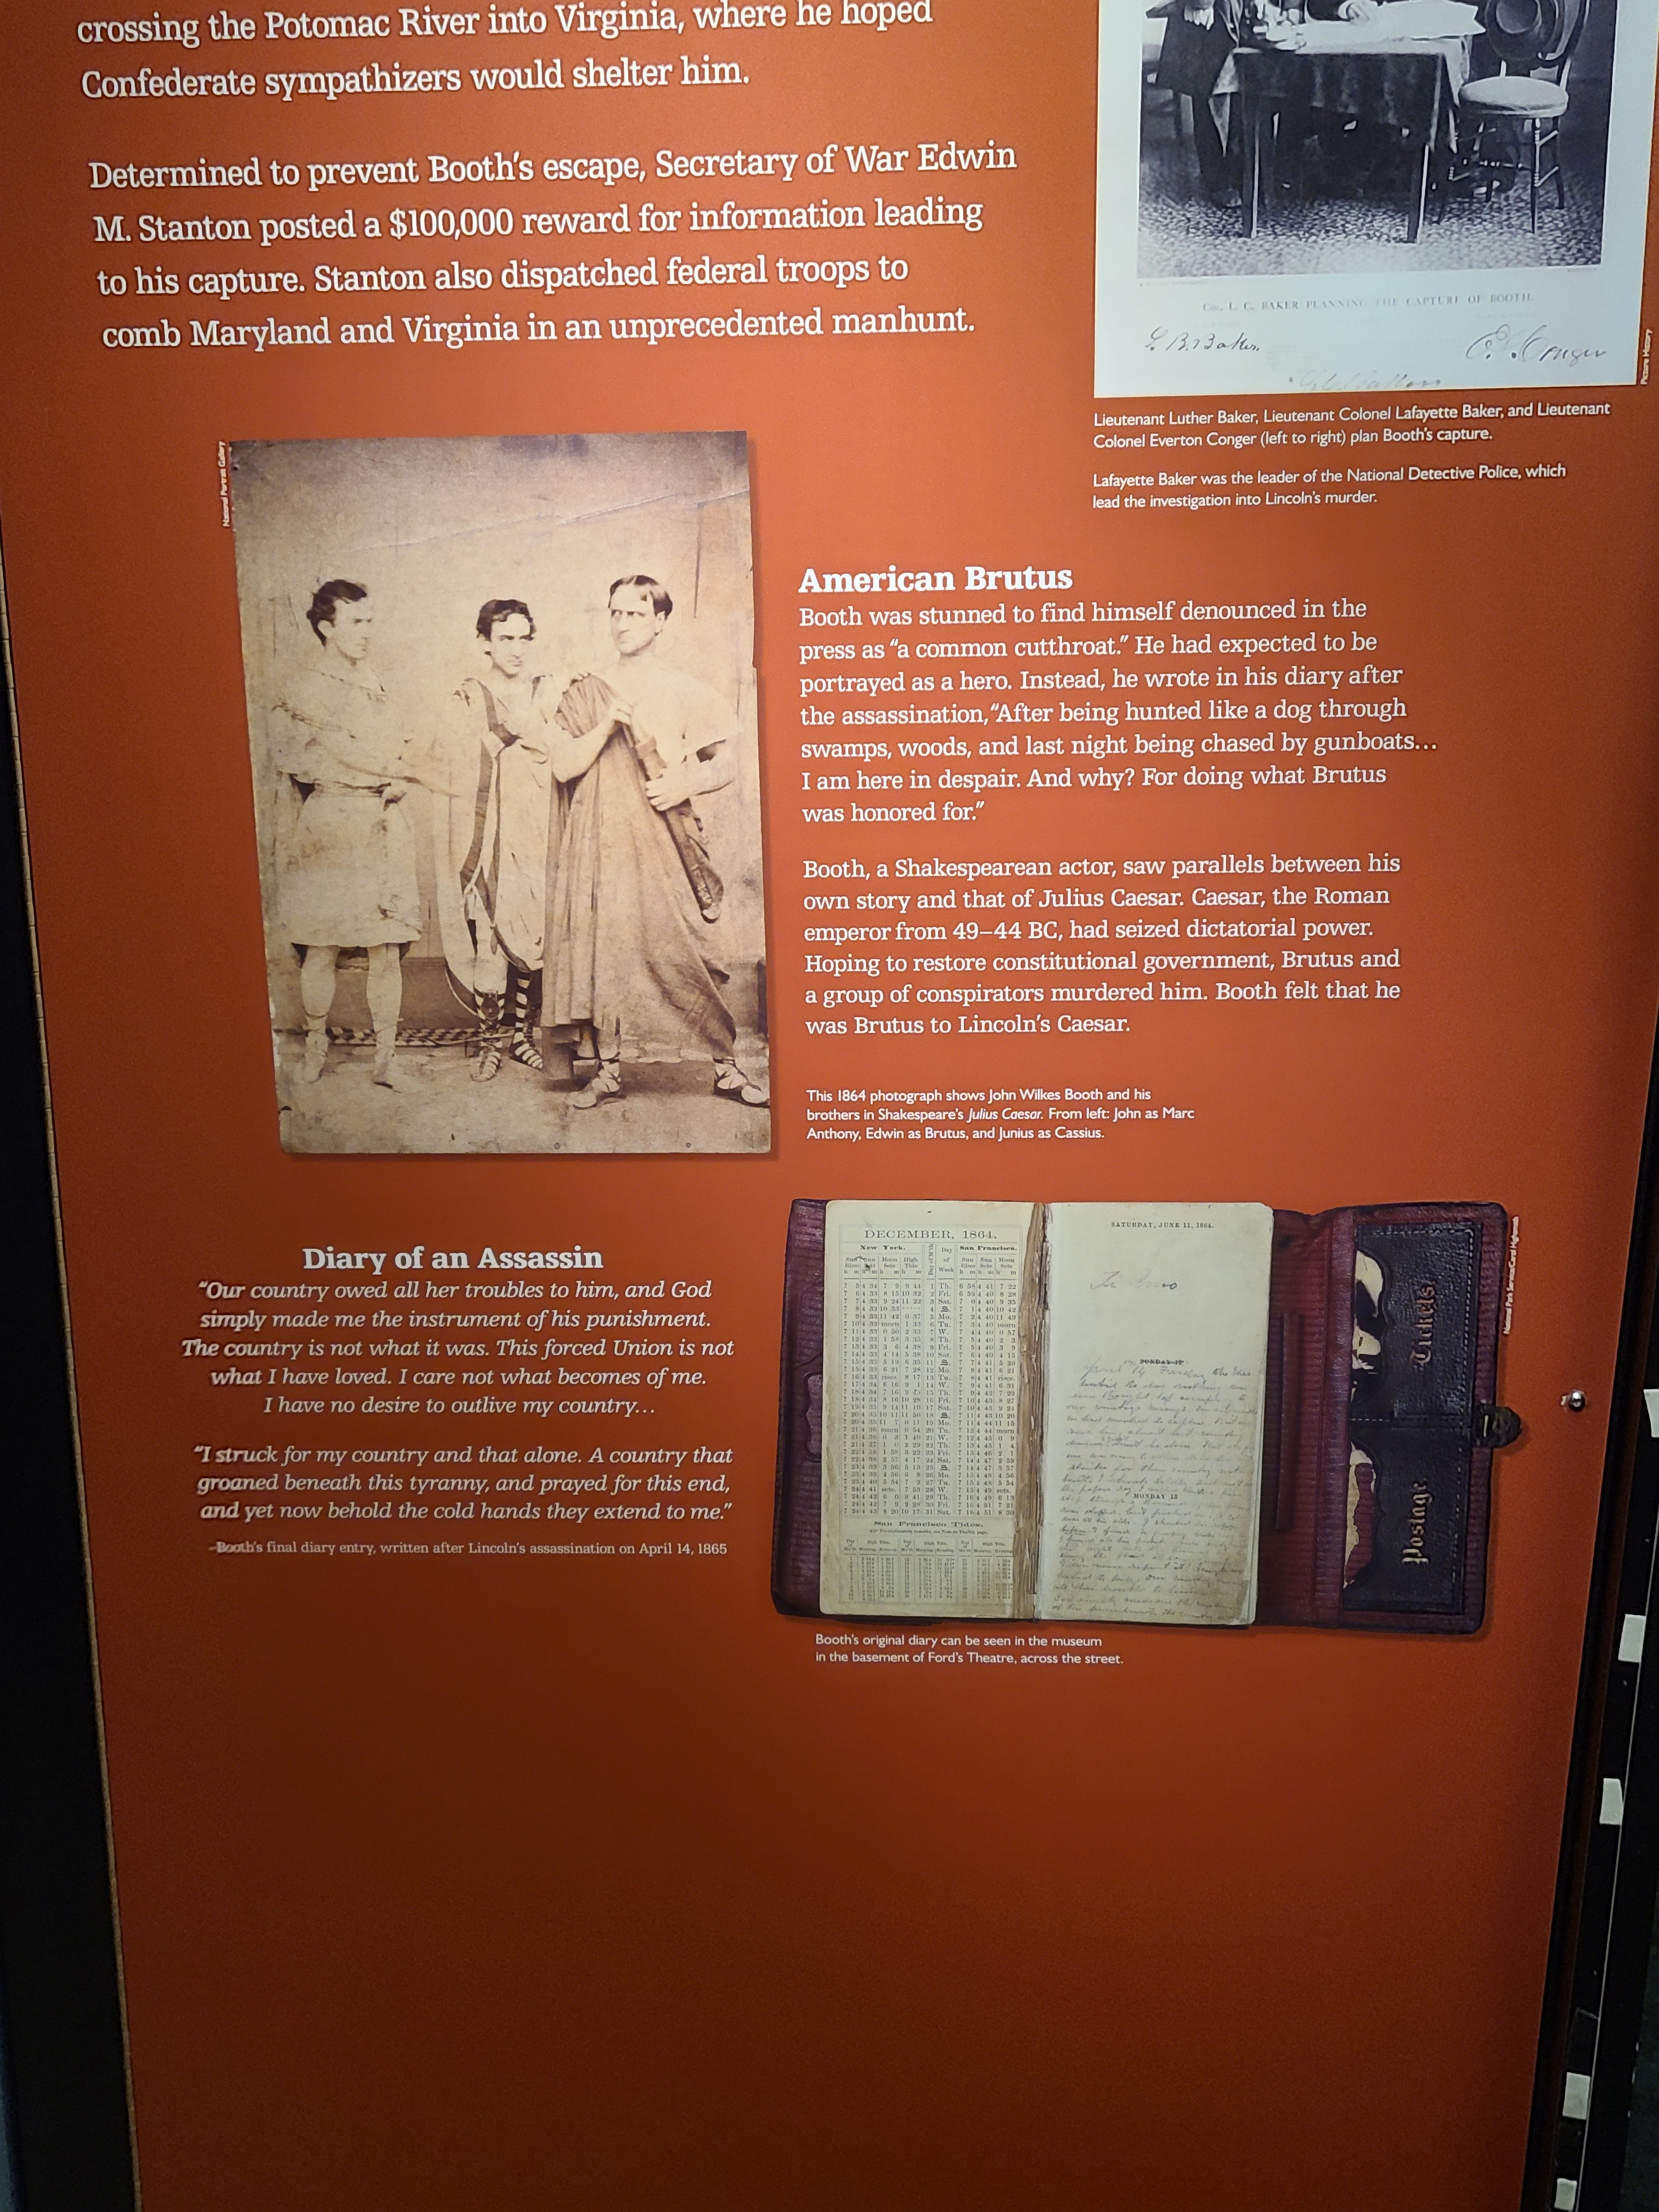 crossing the Potomac River into Virginia, where he hoped
Confederate sympathizers would shelter him.
Determined to prevent Booth's escape, Secretary of War Edwin
M. Stanton posted a $100,000 reward for information leading
to his capture. Stanton also dispatched federal troops to
comb Maryland and Virginia in an unprecedented manhunt.
COL. L. C. BAKER PLANNING THE CAPTURE OF BOOTH.
L. B. Baker.
E. J. Conger
Picture History
Lieutenant Luther Baker, Lieutenant Colonel Lafayette Baker, and Lieutenant
Colonel Everton Conger (left to right) plan Booth's capture.
Lafayette Baker was the leader of the National Detective Police, which
lead the investigation into Lincoln's murder.
National Portrait Gallery
American Brutus
Booth was stunned to find himself denounced in the
press as "a common cutthroat." He had expected to be
portrayed as a hero. Instead, he wrote in his diary after
the assassination, "After being hunted like a dog through
swamps, woods, and last night being chased by gunboats...
I am here in despair. And why? For doing what Brutus
was honored for."
Booth, a Shakespearean actor, saw parallels between his
own story and that of Julius Caesar. Caesar, the Roman
emperor from 49–44 BC, had seized dictatorial power.
Hoping to restore constitutional government, Brutus and
a group of conspirators murdered him. Booth felt that he
was Brutus to Lincoln's Caesar.
This 1864 photograph shows John Wilkes Booth and his
brothers in Shakespeare's Julius Caesar. From left: John as Marc
Anthony, Edwin as Brutus, and Junius as Cassius.
Diary of an Assassin
"Our country owed all her troubles to him, and God
simply made me the instrument of his punishment.
The country is not what it was. This forced Union is not
what I have loved. I care not what becomes of me.
I have no desire to outlive my country...
"I struck for my country and that alone. A country that
groaned beneath this tyranny, and prayed for this end,
and yet now behold the cold hands they extend to me."
–Booth's final diary entry, written after Lincoln's assassination on April 14, 1865
DECEMBER, 1864.
New York.
San Francisco.
San Francisco Tides.
SATURDAY, JUNE 11, 1864.
SUNDAY 12
MONDAY 13
Tickets
Postage
Booth's original diary can be seen in the museum
in the basement of Ford's Theatre, across the street.